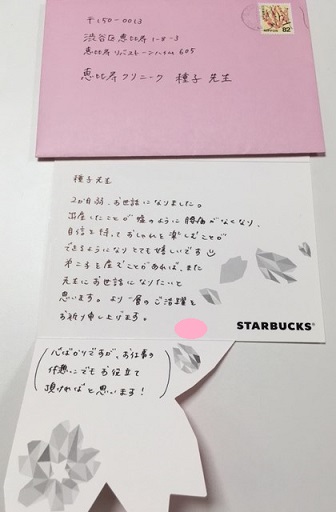 〒150-0013
渋谷区恵比寿1-8-3
恵比寿リバストーンハイム605
恵比寿クリニーク 種子先生
82
種子先生
2か月弱、お世話になりました。
出産したことが嘘のように腰痛がなくなり、
自信を持っておしゃれを楽しむことが
できるようになりとても嬉しいです
第二子を産むことがあれば、また
先生にお世話になりたいと
思います。より一層のご活躍を
お祈り申し上げます。
STARBUCKS®
心ばかりですが、お仕事の
休憩にでもお役立て
頂ければと思います!